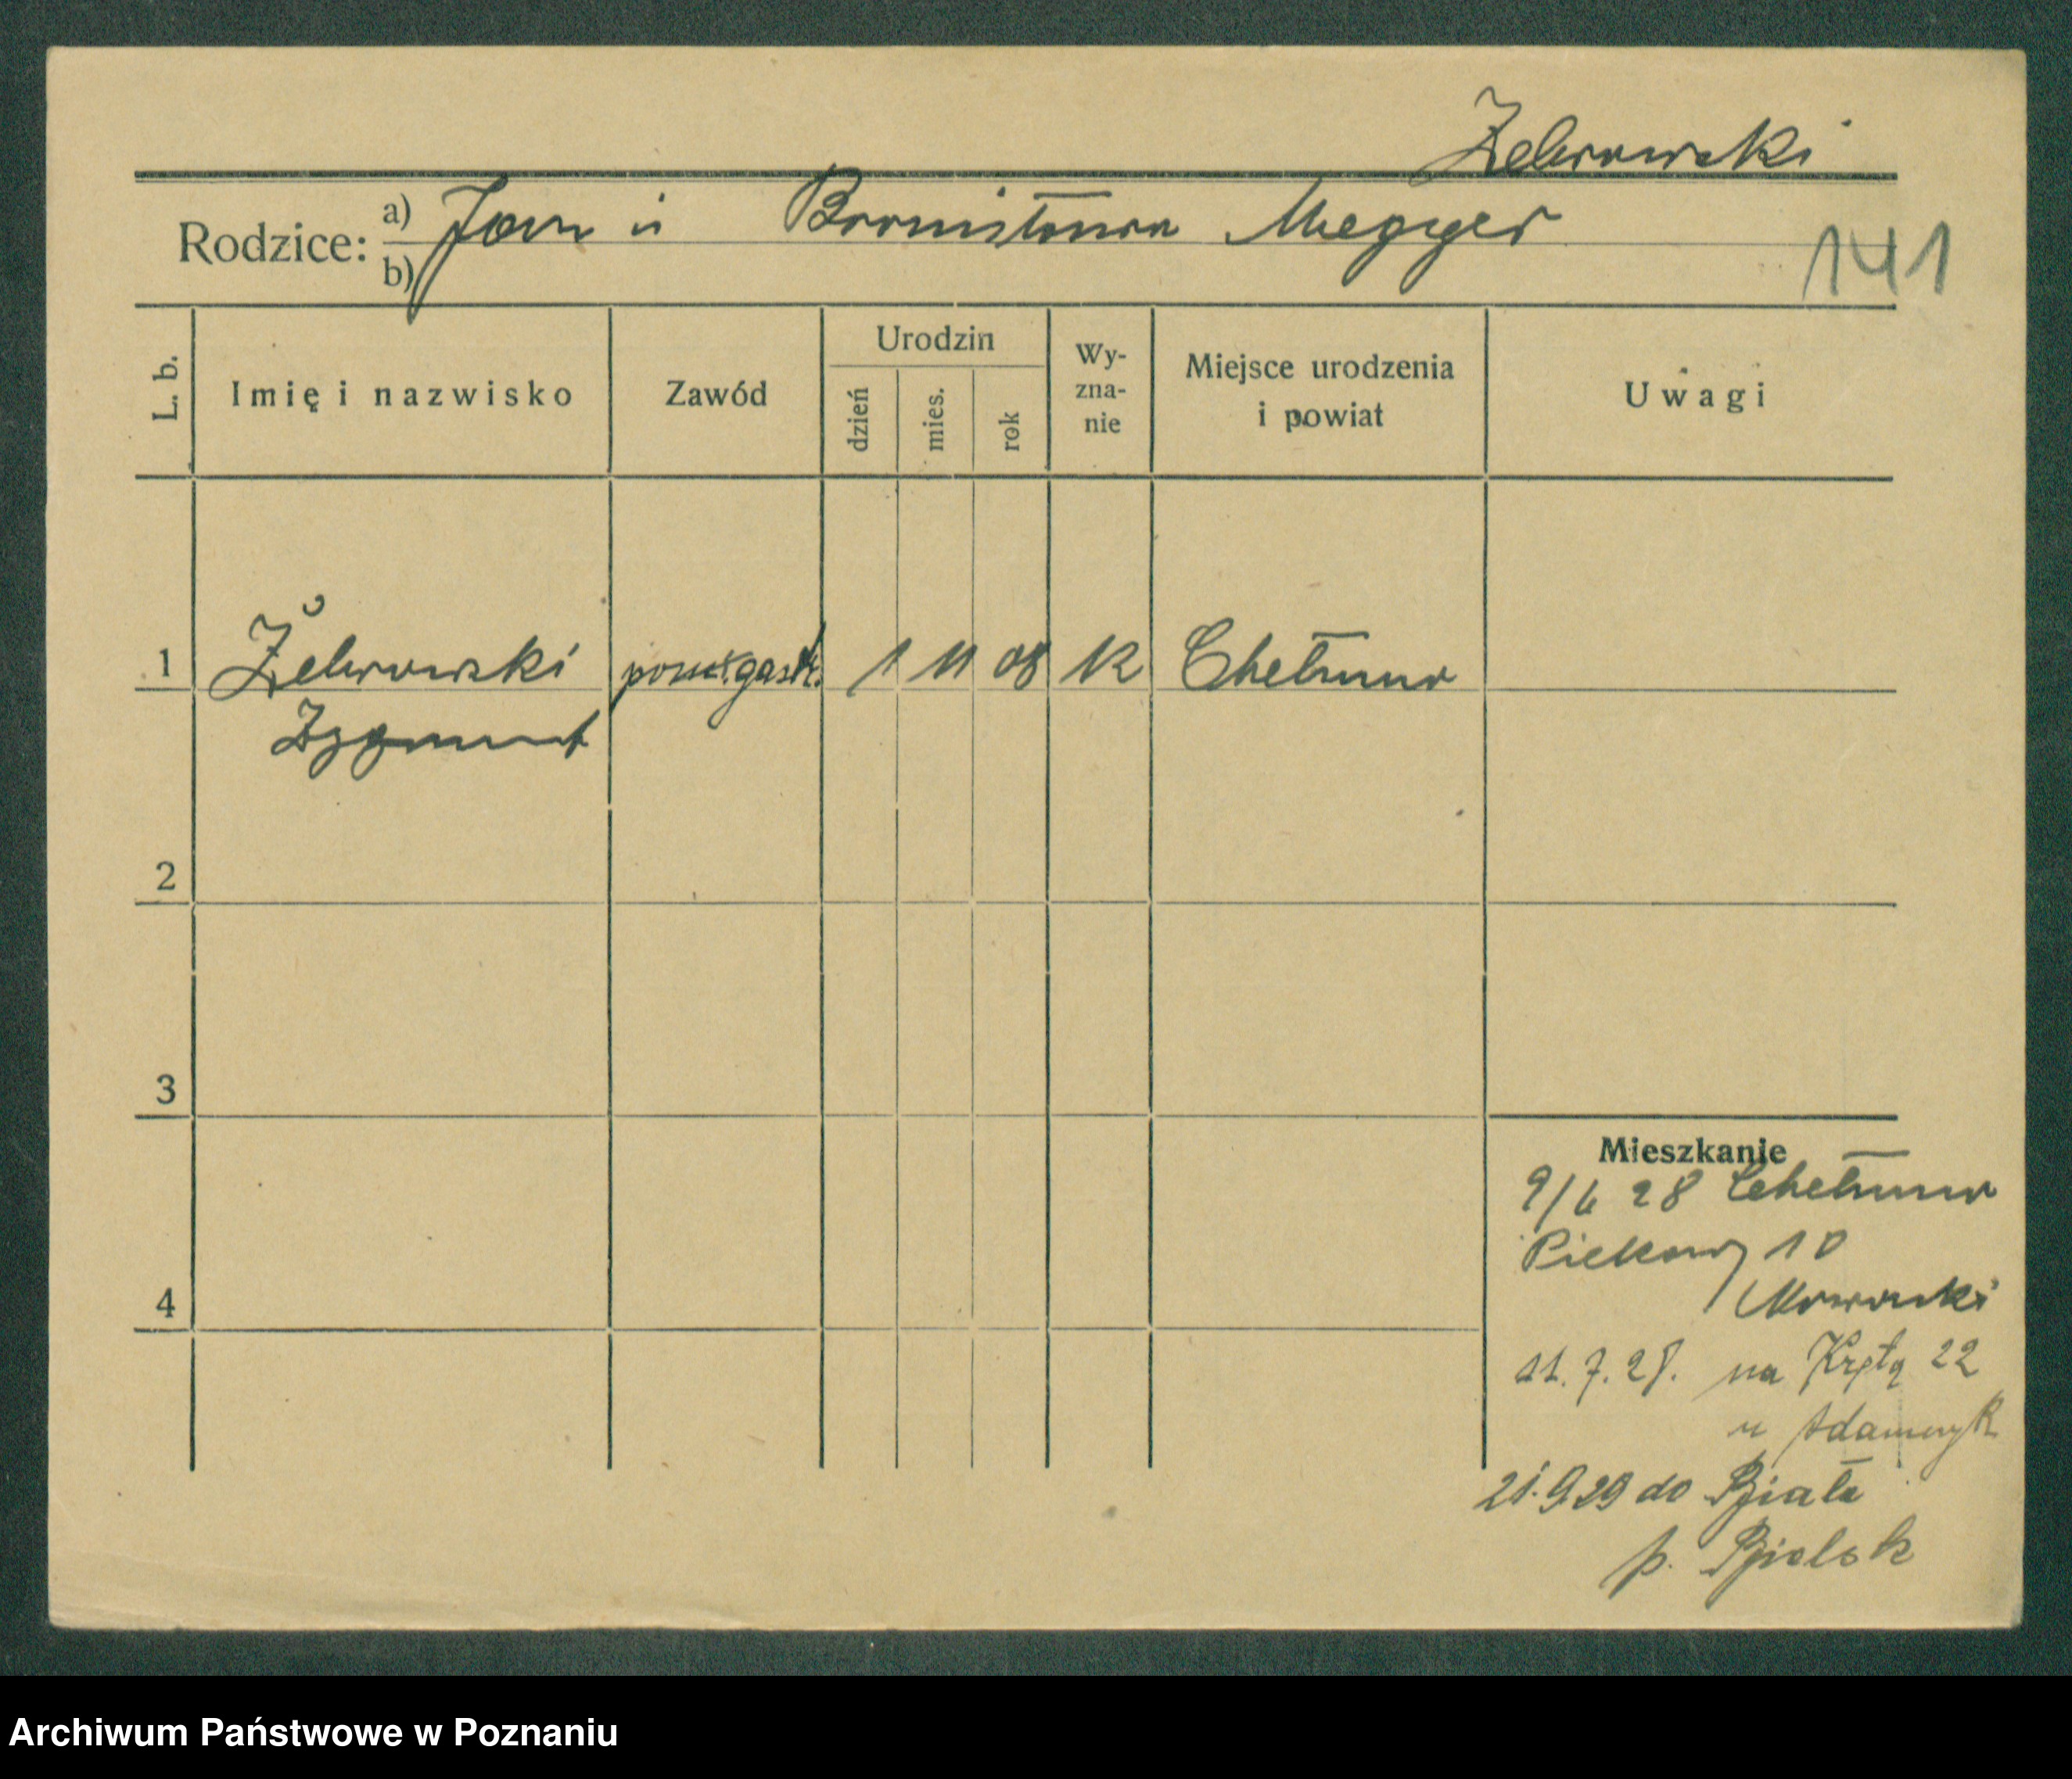 Żebrowski
Rodzice: a) Jan i Bronisława Megger
b)
141
L. b.
Imię i nazwisko
Zawód
Urodzin
dzień
mies.
rok
Wy-
zna-
nie
Miejsce urodzenia
i powiat
Uwagi
1 Żebrowski 1 11 08 K Chełmno
Zygmunt
2
3
4
Mieszkanie
9/6 28 Chełmno
Piekary 10
11.7.28. na Krętą 22
u Adamczyk
21.9.29 do Biała
p. Bielsk
Archiwum Państwowe w Poznaniu